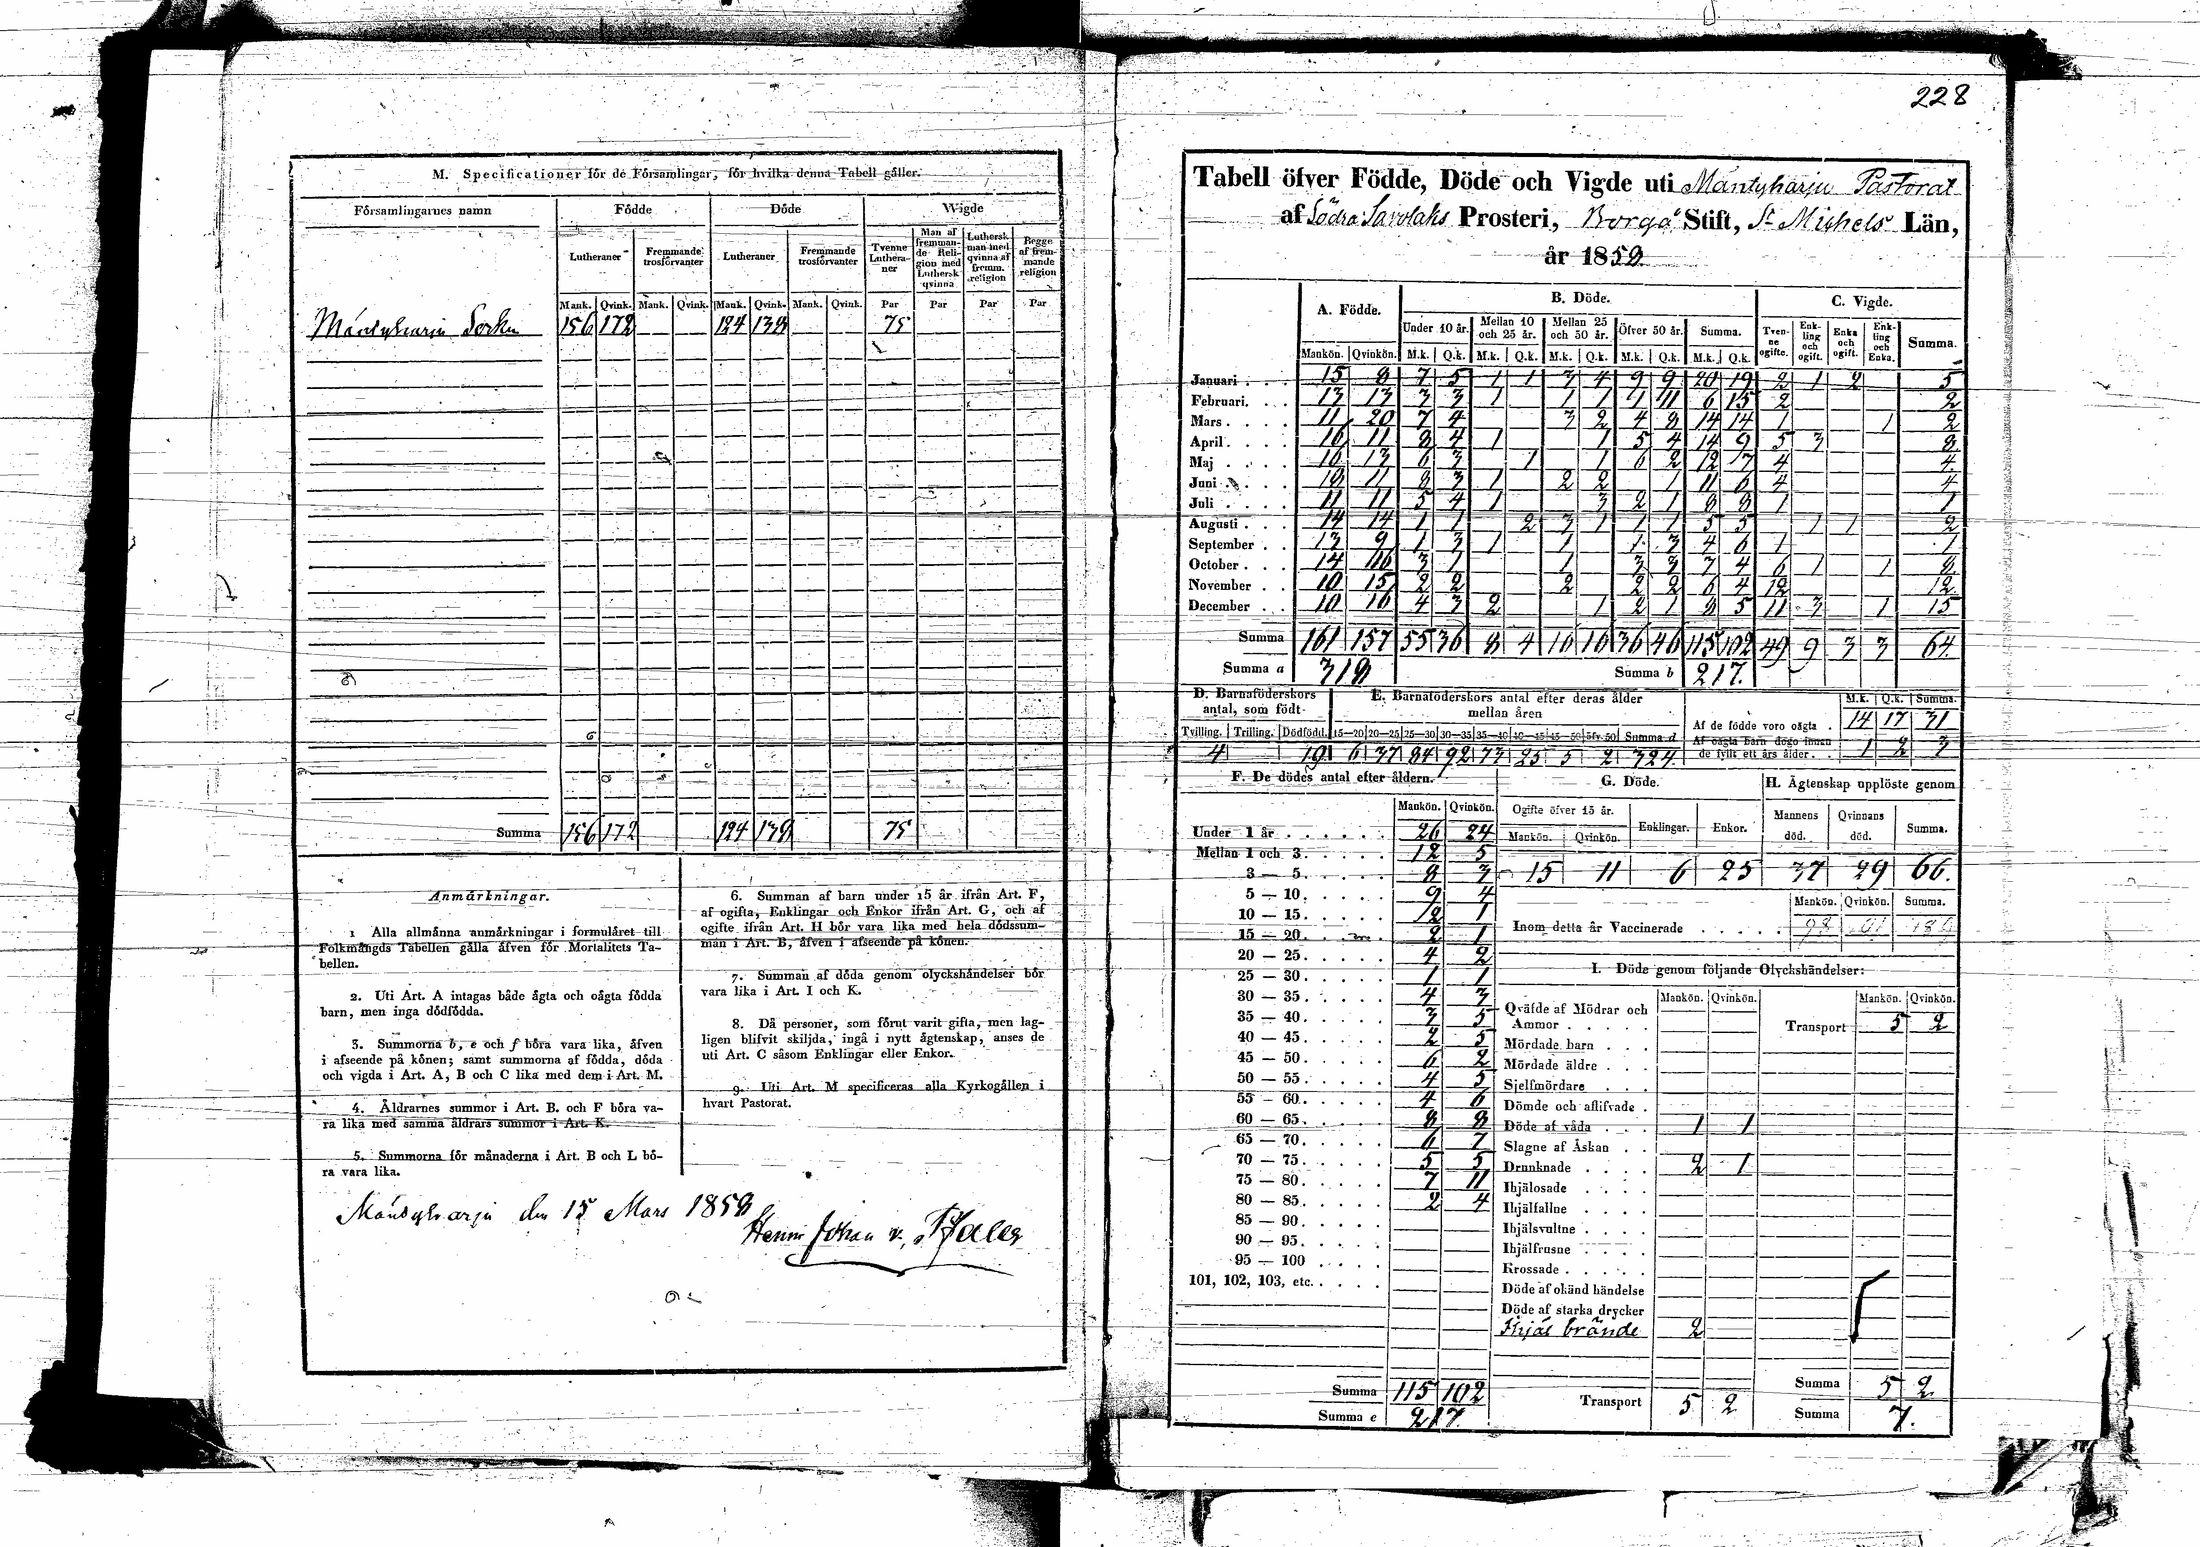 228
M. Specificationer för de Församlingar, för hvilka denna Tabell gäller.
Församlingarnes namn Födde Döde Wigde
Lutheraner Fremmande trosförvanter Lutheraner Fremmande trosförvanter Tvenne Lutheraner Man af fremmande Religion med Luthersk qvinna Luthersk man med qvinna af fremm. religion Begge af fremmande religion
Mank. Qvink. Mank. Qvink. Mank. Qvink. Mank. Qvink. Par Par Par Par
156 172 124 138 75
Summa 156 172 124 138 75
Anmärkningar.
1 Alla allmänna anmärkningar i formuläret till
Folkmängds Tabellen gälla äfven för Mortalitets Ta-
bellen.
2. Uti Art. A intagas både ägta och oägta födda
barn, men inga dödfödda.
3. Summorna b, e och f böra vara lika, äfven
i afseende på könen; samt summorna af födda, döda
och vigda i Art. A, B och C lika med dem i Art. M.
4. Åldrarnes summor i Art. B. och F böra va-
ra lika med samma åldrars summor i Art. K.
5. Summorna för månaderna i Art. B och L bö-
ra vara lika.
6. Summan af barn under 15 år ifrån Art. F,
af ogifta, Enklingar och Enkor ifrån Art. G, och af
ogifte ifrån Art. H bör vara lika med hela dödssum-
man i Art. B, äfven i afseende på könen.
7. Summan af döda genom olyckshändelser bör
vara lika i Art. I och K.
8. Då personer, som förut varit gifta, men lag-
ligen blifvit skiljda, ingå i nytt ägtenskap, anses de
uti Art. C såsom Enklingar eller Enkor.
9. Uti Art. M specificeras alla Kyrkogällen i
hvart Pastorat.
Mäntyharju den 15 Mars 1859
Tabell öfver Födde, Döde och Vigde uti Mäntyharju Pastorat
af Södra Savolaks Prosteri, Borgå Stift, St Michels Län,
år 1859
A. Födde. B. Döde. C. Vigde.
Under 10 år. Mellan 10 och 25 år. Mellan 25 och 50 år. Öfver 50 år. Summa. Tvenne ogifte. Enkling och ogift. Enka och ogift. Enkling och Enka. Summa.
Mankön. Qvinkön. M.k. Q.k. M.k. Q.k. M.k. Q.k. M.k. Q.k. M.k. Q.k.
Januari 15 8 7 5 1 1 3 4 9 9 20 19 2 1 2 5
Februari. 13 13 3 3 1 1 1 1 11 6 15 2 2
Mars 11 20 7 4 3 2 4 8 14 14 1 1 2
April 16 11 8 4 1 1 5 4 14 9 5 3 8
Maj 16 13 6 3 1 1 6 2 12 7 4 4
Juni 18 11 8 3 1 2 2 1 11 6 4 4
Juli 11 11 5 4 1 3 2 1 8 8 1 1
Augusti 14 14 1 1 2 3 1 1 1 5 5 1 1 2
September 13 9 1 3 1 1 1 3 4 6 1 1
October 14 16 3 1 1 3 3 7 4 6 1 1 8
November 10 15 2 2 2 2 2 6 4 12 12
December 10 16 4 3 2 1 2 1 8 5 11 3 1 15
Summa 161 157 55 36 8 4 16 16 36 46 115 102 49 9 3 3 64
Summa a 318 Summa b 217.
D. Barnaföderskors antal, som födt E. Barnaföderskors antal efter deras ålder mellan åren M.k. Q.k. Summa.
Tvilling. Trilling. Dödfödd. 15—20 20—25 25—30 30—35 35—40 40—45 45—50 öfv. 50 Summa d
4 19 6 37 84 92 73 25 5 2 324
Af de födde voro oägta 14 17 31
Af oägta barn dogo innan de fyllt ett års ålder 1 2 3
F. De dödes antal efter åldern. G. Döde. H. Ägtenskap upplöste genom
Mankön. Qvinkön. Ogifte öfver 15 år. Mankön. Qvinkön. Enklingar. Enkor. Mannens död. Qvinnans död. Summa.
15 11 6 25 37 29 66.
Under 1 år 26 24
Mellan 1 och 3 12 5
3 — 5 8 3
5 — 10 9 4
10 — 15 12 1
15 — 20 2 1
20 — 25 4 2
25 — 30 1 1
30 — 35 4 3
35 — 40 3 5
40 — 45 2 5
45 — 50 6 2
50 — 55 4 5
55 — 60 4 6
60 — 65 8 8
65 — 70 6 7
70 — 75 5 5
75 — 80 7 11
80 — 85 2 4
85 — 90
90 — 95
95 — 100
101, 102, 103, etc.
Summa 115 102
Summa e 217.
Mankön. Qvinkön. Summa.
Inom detta år Vaccinerade 98 91 189
I. Döde genom följande Olyckshändelser:
Mankön. Qvinkön. Mankön. Qvinkön.
Transport 5 2
Qväfde af Mödrar och Ammor
Mördade barn
Mördade äldre
Sjelfmördare
Dömde och aflifvade
Döde af våda 1 1
Slagne af Åskan
Drunknade 2 1
Ihjälosade
Ihjälfallne
Ihjälsvultne
Ihjälfrusne
Krossade
Döde af okänd händelse
Döde af starka drycker
Ihjäl brände 2
Transport 5 2
Summa 5 2
Summa 7.